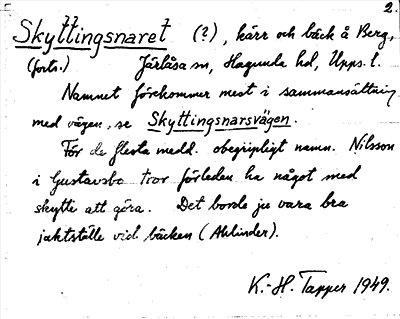 2.
Skyttingsnaret (?), kärr och bäck å Berg,
(forts.) Järlåsa sn, Hagunda hd, Upps. l.
Namnet förekommer mest i sammansättning
med vägen, se Skyttingsnarsvägen.
För de flesta medd. obegripligt namn. Nilsson
i Gustavsbo tror förleden ha något med
skytte att göra. Det borde ju vara bra
jaktställe vid bäcken (Ahlinder).
K.-H. Tapper 1949.